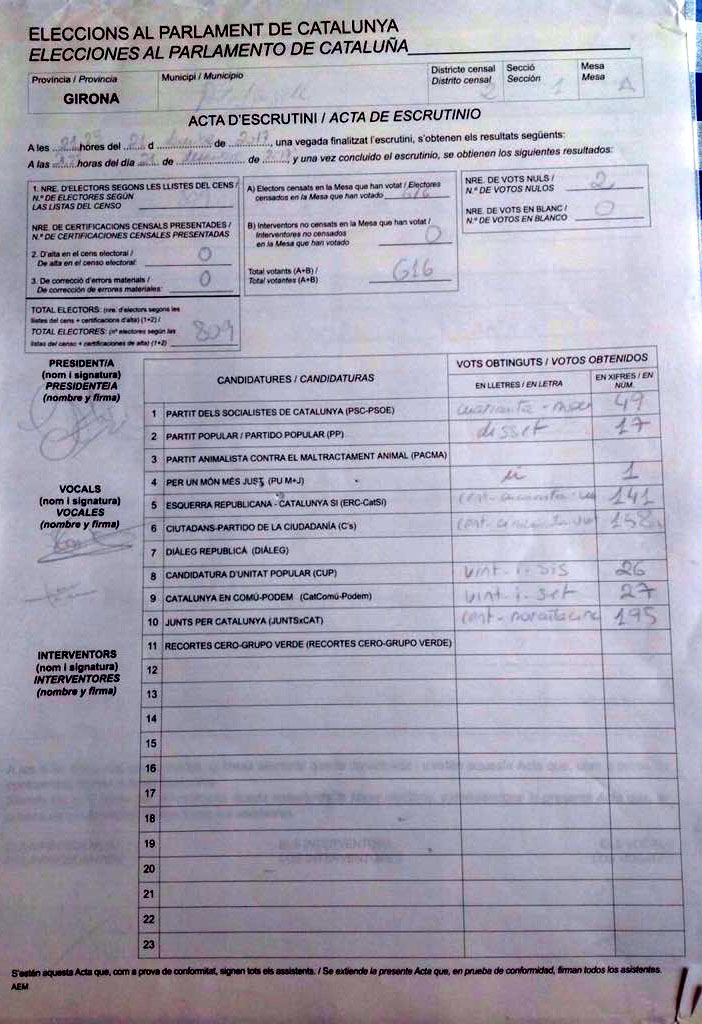 ELECCIONS AL PARLAMENT DE CATALUNYA
ELECCIONES AL PARLAMENTO DE CATALUÑA
Província / Provincia
GIRONA
Municipi / Municipio
Districte censal
Distrito censal 2
Secció
Sección 1
Mesa
Mesa A
ACTA D'ESCRUTINI / ACTA DE ESCRUTINIO
A les hores del 21 d de 2017, una vegada finalitzat l'escrutini, s'obtenen els resultats següents:
A las horas del día 21 de de 2017, y una vez concluido el escrutinio, se obtienen los siguientes resultados:
1. NRE. D'ELECTORS SEGONS LES LLISTES DEL CENS /
N.º DE ELECTORES SEGÚN
LAS LISTAS DEL CENSO
NRE. DE CERTIFICACIONS CENSALS PRESENTADES /
N.º DE CERTIFICACIONES CENSALES PRESENTADAS
2. D'alta en el cens electoral:
De alta en el censo electoral: 0
3. De correcció d'errors materials /
De corrección de errores materiales: 0
TOTAL ELECTORS: (nre. d'electors segons les
llistes del cens + certificacions d'alta) (1+2) /
TOTAL ELECTORES: (nº electores según las
listas del censo + certificaciones de alta) (1+2) 809
A) Electors censats en la Mesa que han votat / Electores
censados en la Mesa que han votado 616
B) Interventors no censats en la Mesa que han votat /
Interventores no censados
en la Mesa que han votado 0
Total votants (A+B) /
Total votantes (A+B) 616
NRE. DE VOTS NULS /
N.º DE VOTOS NULOS 2
NRE. DE VOTS EN BLANC /
N.º DE VOTOS EN BLANCO 0
PRESIDENT/A
(nom i signatura)
PRESIDENTE/A
(nombre y firma)
VOCALS
(nom i signatura)
VOCALES
(nombre y firma)
INTERVENTORS
(nom i signatura)
INTERVENTORES
(nombre y firma)
CANDIDATURES / CANDIDATURAS
VOTS OBTINGUTS / VOTOS OBTENIDOS
EN LLETRES / EN LETRA
EN XIFRES / EN NÚM.
1 PARTIT DELS SOCIALISTES DE CATALUNYA (PSC-PSOE) quaranta-nou 49
2 PARTIT POPULAR / PARTIDO POPULAR (PP) disset 17
3 PARTIT ANIMALISTA CONTRA EL MALTRACTAMENT ANIMAL (PACMA)
4 PER UN MÓN MÉS JUST (PU M+J) 1
5 ESQUERRA REPUBLICANA - CATALUNYA SÍ (ERC-CatSí) cent-quaranta-u 141
6 CIUTADANS-PARTIDO DE LA CIUDADANÍA (C's) 158
7 DIÀLEG REPUBLICÀ (DIÀLEG)
8 CANDIDATURA D'UNITAT POPULAR (CUP) vint-i-sis 26
9 CATALUNYA EN COMÚ-PODEM (CatComú-Podem) vint-i-set 27
10 JUNTS PER CATALUNYA (JUNTSxCAT) 195
11 RECORTES CERO-GRUPO VERDE (RECORTES CERO-GRUPO VERDE)
12
13
14
15
16
17
18
19
20
21
22
23
S'estén aquesta Acta que, com a prova de conformitat, signen tots els assistents. / Se extiende la presente Acta que, en prueba de conformidad, firman todos los asistentes.
AEM